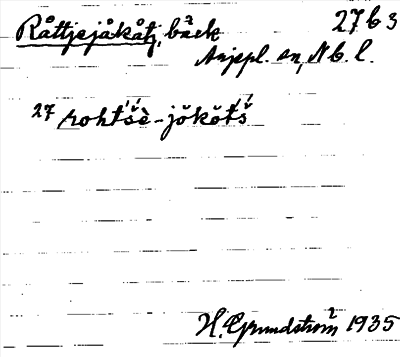 Råttjejåkåtj, bäck 27b3
Arjepl. sn, Nb. l.
27 roht́š̀è-jŏkŏt́š
H. Grundström 1935